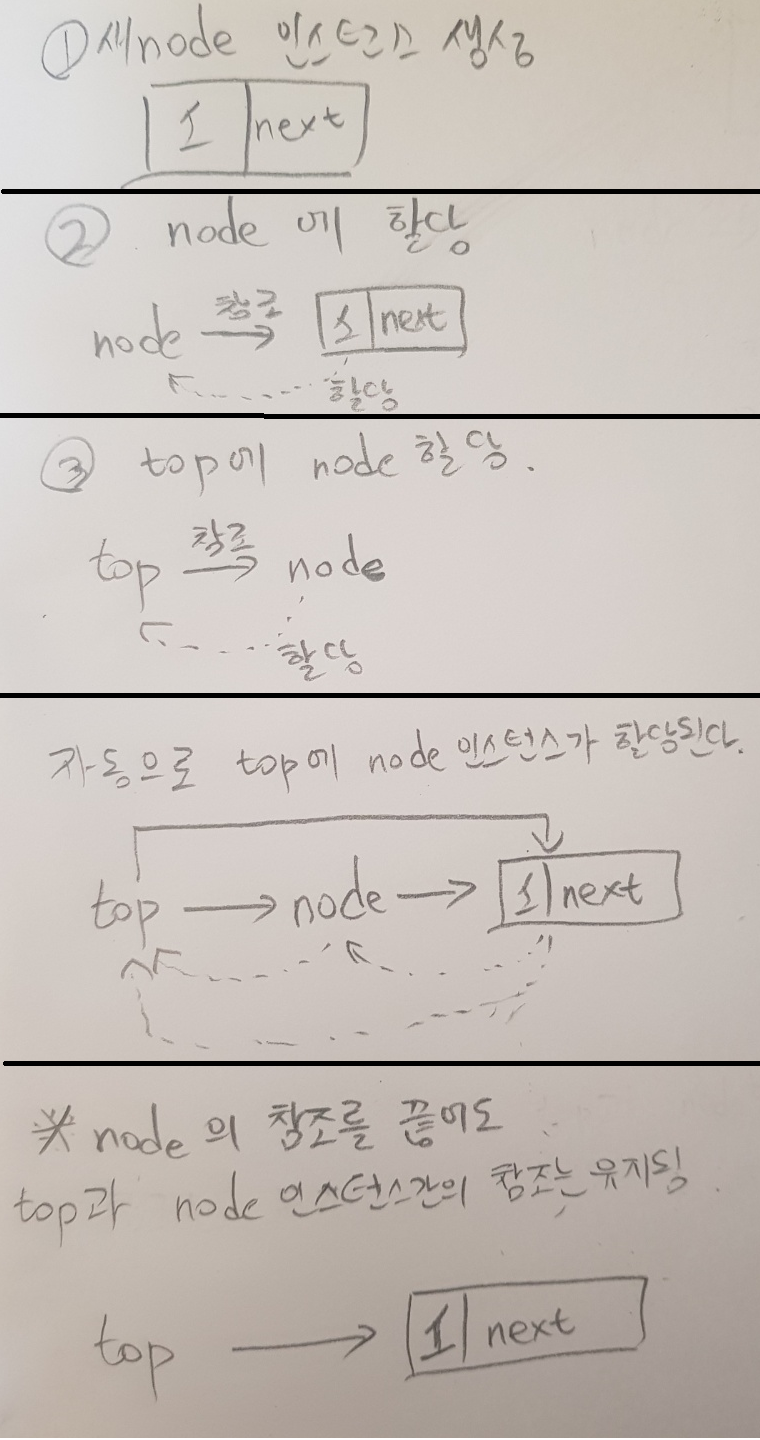 ① 새node 인스턴스 생성
1 next
② node 에 할당
node 참조 1 next
할당
③ top에 node 할당.
top 참조 node
할당
자동으로 top에 node 인스턴스가 할당된다.
top node 1 next
※ node의 참조를 끊어도
top과 node 인스턴스간의 참조는 유지됨.
top 1 next